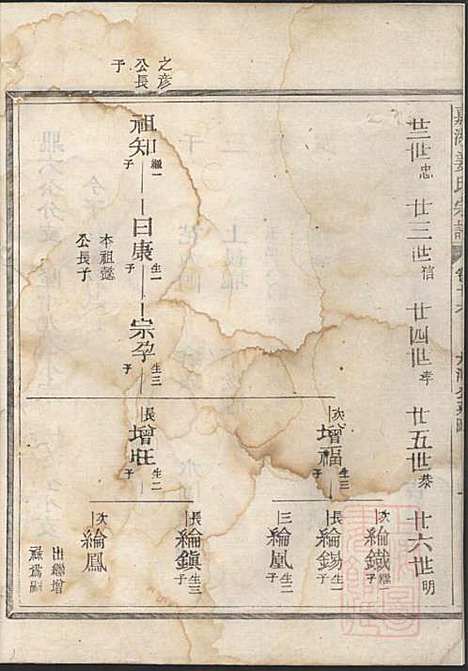 廿二世忠
廿三世信
廿四世孝
廿五世恭
廿六世明
之彦
公長
子
祖知 繼一子
曰康 生一子
本祖懿
公長子
宗孕 生三子
次 增福 生三子
長 增旺 生二子
次 綸鐵 繼一子
長 綸錫 生二子
三 綸凰 生二子
長 綸鎭 生三子
次 綸鳳
出繼增